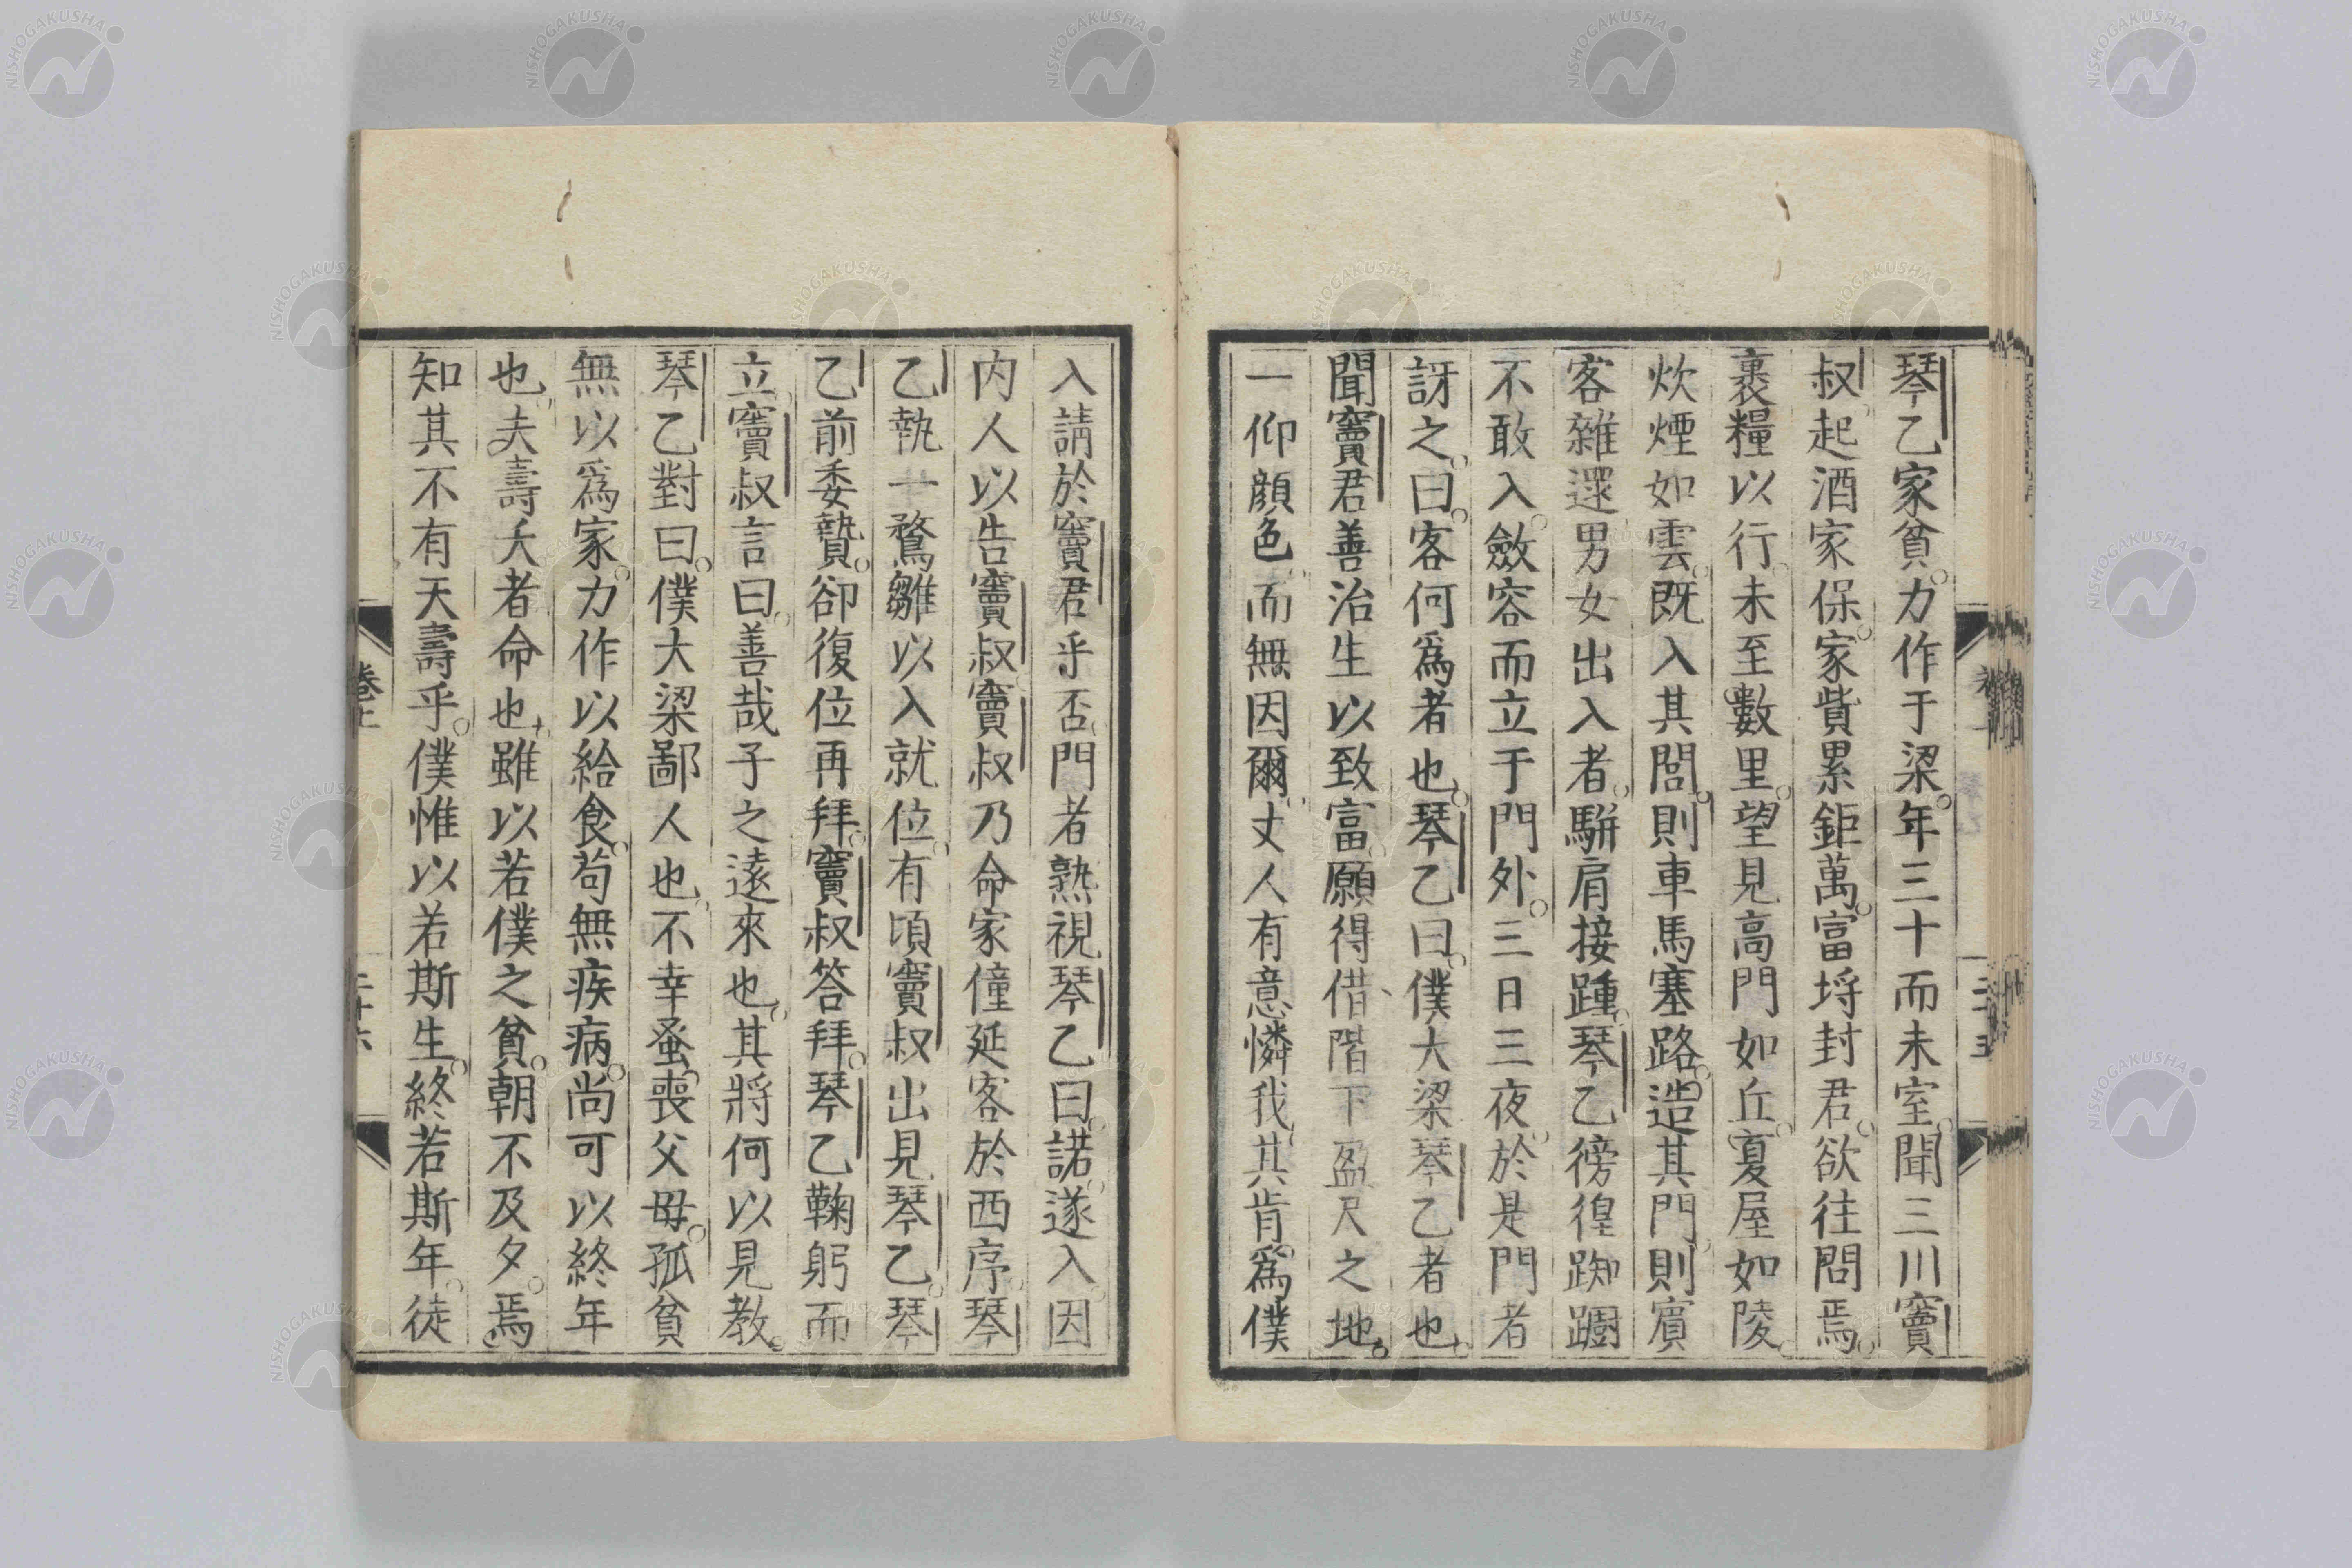 琴乙家貧。力作于梁。年三十而未室。聞三川竇
叔起酒家保。家貲累鉅萬。富埓封君。欲往問焉。
裹糧以行。未至數里。望見高門如丘。夏屋如陵。
炊煙如雲。既入其閭。則車馬塞路。造其門。則賓
客雜還男女出入者。駢肩接踵。琴乙徬徨踟躕
不敢入。斂容而立于門外。三日三夜。於是門者
訝之。曰。客何爲者也。琴乙曰。僕大梁琴乙者也。
聞竇君善治生以致富。願得借階下盈尺之地。
一仰顏色。而無因爾。丈人有意憐我。其肯爲僕
入請於竇君乎否。門者熟視琴乙曰。諾。遂入。因
内人以告竇叔。竇叔乃命家僮延客於西序。琴
乙執一鶩雛以入就位。有頃竇叔出見琴乙。琴
乙前委贄。卻復位再拜。竇叔答拜。琴乙鞠躬而
立。竇叔言曰。善哉子之遠來也。其將何以見教。
琴乙對曰。僕大梁鄙人也。不幸蚤喪父母。孤貧
無以爲家。力作以給食。苟無疾病。尚可以終年
也。夫壽夭者命也。雖以若僕之貧。朝不及夕。焉
知其不有天壽乎。僕惟以若斯生。終若斯年。徒
卷上